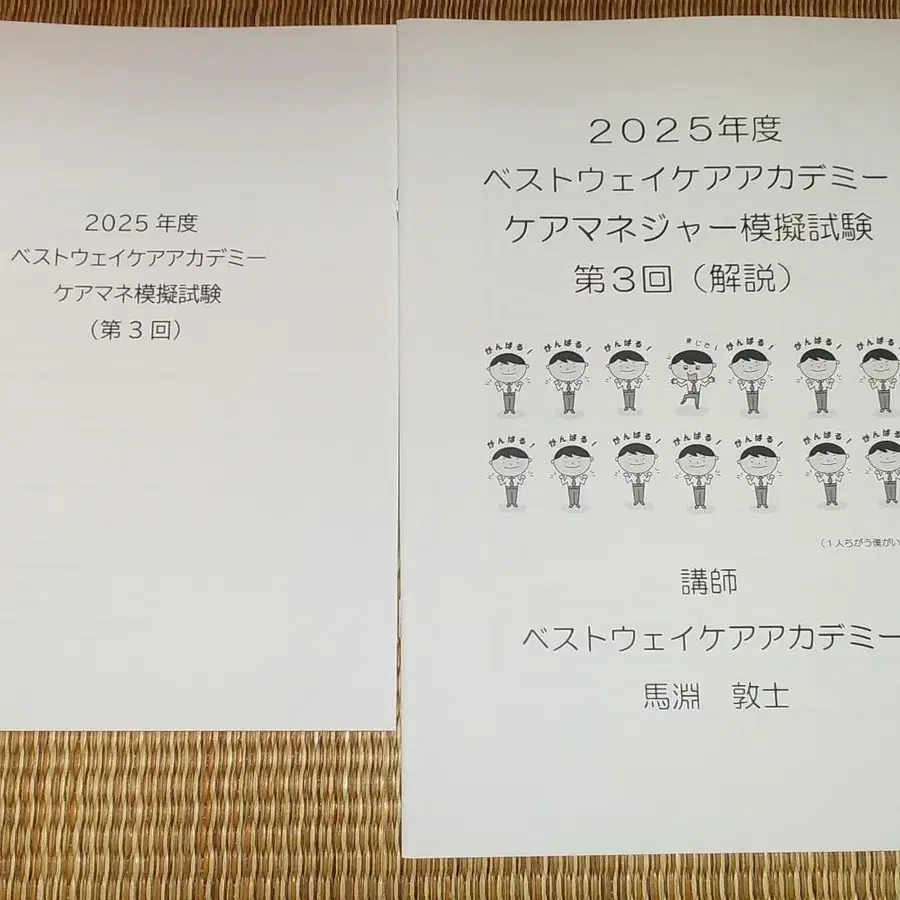 2025年度
ベストウェイケアアカデミー
ケアマネ模擬試験
（第3回）
2025年度
ベストウェイケアアカデミー
ケアマネジャー模擬試験
第3回（解説）
がんばる！ がんばる！ がんばる！ まじで！ がんばる！ がんばる！ がんばる！
がんばる！ がんばる！ がんばる！ がんばる！ がんばる！ がんばる！ がんばる！
（1人ちがう僕がい
講師
ベストウェイケアアカデミー
馬淵　敦士